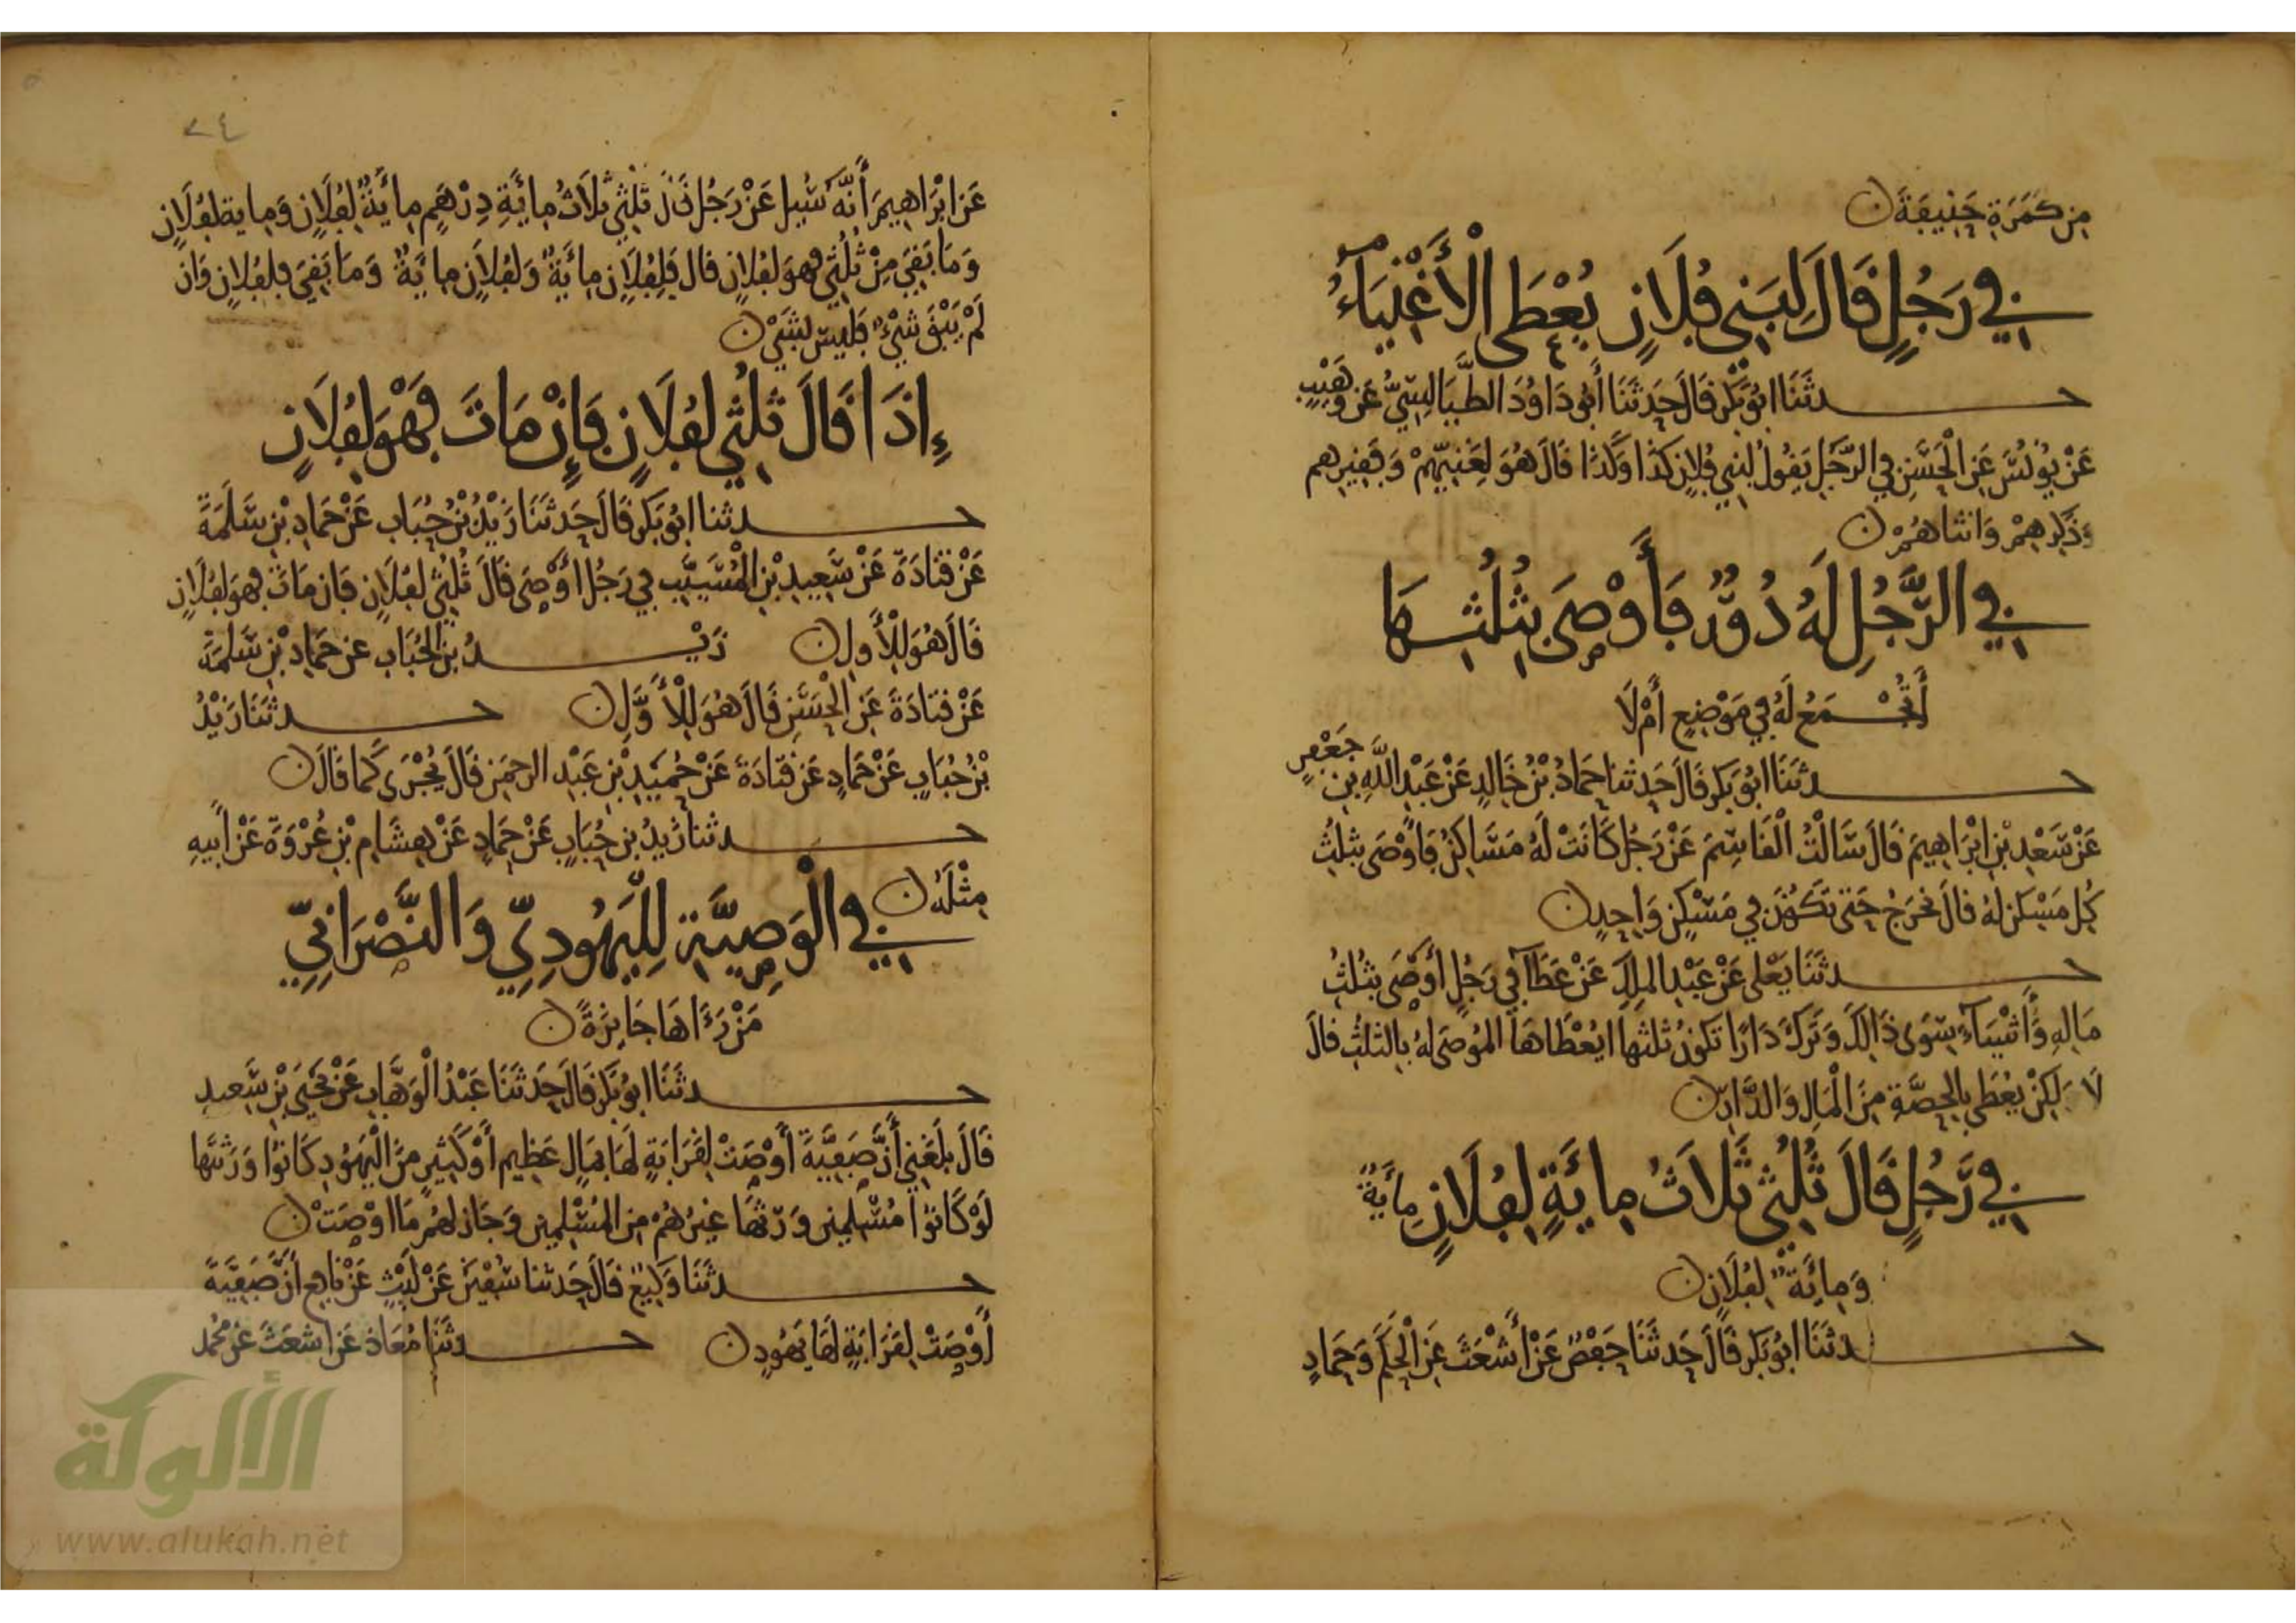 مِن كَمَرَةِ حَنِيفَةَ
فِي رَجُلٍ قَالَ لِبَنِي فُلَانٍ يُعْطَى الْأَغْنِيَاءُ
حدثَنَا ابُو بَكرٍ قَالَ حَدثَنَا أَبُو دَاوُدَ الطَّيَالِسِيُّ عَنْ وُهَيْبٍ
عَنْ يُونُسَ عَنِ الْحَسَنِ فِي الرَّجُلِ يَقُولُ لِبَنِي فُلَانٍ كَذَا وَكَذَا قَالَ هُوَ لِغَنِيِّهِمْ وَفَقِيرِهِم
وَذَكَرِهِمْ وَانثَاهُمْ
فِي الرَّجُلِ لَهُ دُوْرٌ فَأَوْصَى بِثُلُثِهَا
أَتُجْمَعُ لَهُ فِي مَوْضِعٍ أَمْ لَا
حدثَنَا ابُو بَكرٍ قَالَ حَدثنا حَمادُ بْنُ خَالِدٍ عَنْ عَبْدِ اللَّهِ بنِ جَعْفَرٍ
عَنْ سَعْدِ بْنِ ابْرَاهِيمَ قَالَ سَالْتُ الْقَاسِمَ عَنْ رَجُلٍ كَانَتْ لَهُ مَسَاكِنُ فَاوْصَى بثلثِ
كُلِ مَسْكَنٍ لَهُ قالَ يُخرَجُ حَتى تَكُونَ فِي مَسْكِنٍ وَاحِدٍ
حدثَنَا يَعْلى عَنْ عَبْدِ الملِكِ عَنْ عَطَآ فِي رَجُلٍ أَوْصَى بِثُلُثِ
مَالِهِ وَأَشْيَآءَ سِوَى ذَالِكَ وَتَرَكَ دَارًا تَكُونُ ثلثها ايُعْطَاهَا الموُصَى لهُ بِالثلثِ قالَ
لَا وَلكِنْ يُعْطَى بِالحِصَّةِ مِنَ الْمَالِ وَالدَّارِ
فِي رَجُلٍ قَالَ ثُلُثِي ثَلَاثُ مِايَةٍ لِفُلَانٍ مِأيَةٌ
وَمِايَةٌ لِفُلَانٍ
حدثَنَا ابُو بَكرٍ قَالَ حَدثَنَا حَفْصٌ عَنْ أَشْعَثَ عَنِ الْحَكَمِ وَحَمادٍ
٢٤
عَن ابْرَاهِيمَ أَنَّهُ سُيِلَ عَنْ رَجُلٍ قَالَ ثُلُثِي ثَلَاثُ مِايَةِ دِرْهَمٍ مِايَةٌ لِفُلَانٍ وَمِاية لفُلَانٍ
وَمَا بَقِيَ مِنْ ثُلُثِي فهوَ لفُلانٍ قال فَلِفُلَانٍ مِايَةٌ وَلفُلَانٍ مِايَةٌ وَمَا بَقِيَ فلِفُلانٍ وَان
لَمْ يَبْقَ شَيْءٌ فَليسَ لشَيْ
إِذَا قَالَ ثُلُثِي لفُلَانٍ فَإِنْ مَاتَ فَهْوَ لِفُلَانٍ
حدثنا ابُو بَكرٍ قَالَ حَدثَنَا زَيْدُ بْنُ حُبَابٍ عَنْ حَمادِ بْنِ سَلَمَةَ
عَنْ قتادَةَ عَنْ سَعِيدِ بْنِ الْمُسَيَّبِ فِي رَجُلٍ أَوْصَى قَالَ ثُلُثِي لفُلَانٍ فَان مَاتَ فهوَ لفُلَانٍ
قَالَ هُوَ لِلْأَولِ زَيْدُ بنُ الحُبَابِ عن حَمادِ بْنِ سَلَمَةَ
عَنْ قتادَةَ عَنِ الْحَسَنِ قَالَ هُوَ لِلْأَوَّلِ حدثَنَا زَيْدُ
بْنُ حُبَابٍ عَنْ حَمادٍ عَنْ قَتَادَةَ عَنْ حُمَيْدِ بْنِ عَبْدِ الرحمَنِ قَالَ يُجْرَى كَما قَالَ
حدثنا زَيدُ بن حُبَابٍ عَنْ حَمادٍ عَنْ هِشَامِ بْنِ عُرْوَةَ عَنْ أَبِيهِ
مِثْلَهُ
فِي الْوَصِيَّةِ لِلْيَهُودِيِّ وَالنَّصْرَانِيِّ
مَنْ رَءَاهَا جَايِزَةً
حدثَنَا ابُو بَكرٍ قَالَ حَدثَنَا عَبْدُ الْوَهَّابِ عَنْ يَحْيَى بْنِ سَعيدٍ
قَالَ بَلَغَنِي أَنَّ صَفِيَّةَ أَوْصَتْ لِقَرَابَةٍ لَهَا بِمَالٍ عَظِيمٍ أَوْ كَثِيرٍ مِنَ الْيَهُودِ كَانوُا وَرَثَتَها
لَوْ كَانوُا مُسْلِمِينَ وَرَثَهَا غيرُهُمْ مِنَ المُسْلِمِينِ وَجَازَ لهُمْ مَا اوْصَتْ
حدثَنَا وَكِيعٌ قَالَ حَدثنا سُفْيَنُ عَنْ لَيْثٍ عَنْ نافِعٍ أَنَّ صَفِيَّةَ
أَوْصَتْ لِقَرَابَةٍ لَهَا يَهُودٍ حدثَنَا مُعَاذ عَن اشعَثَ عَن مُحمد
الألوكة
www.alukah.net